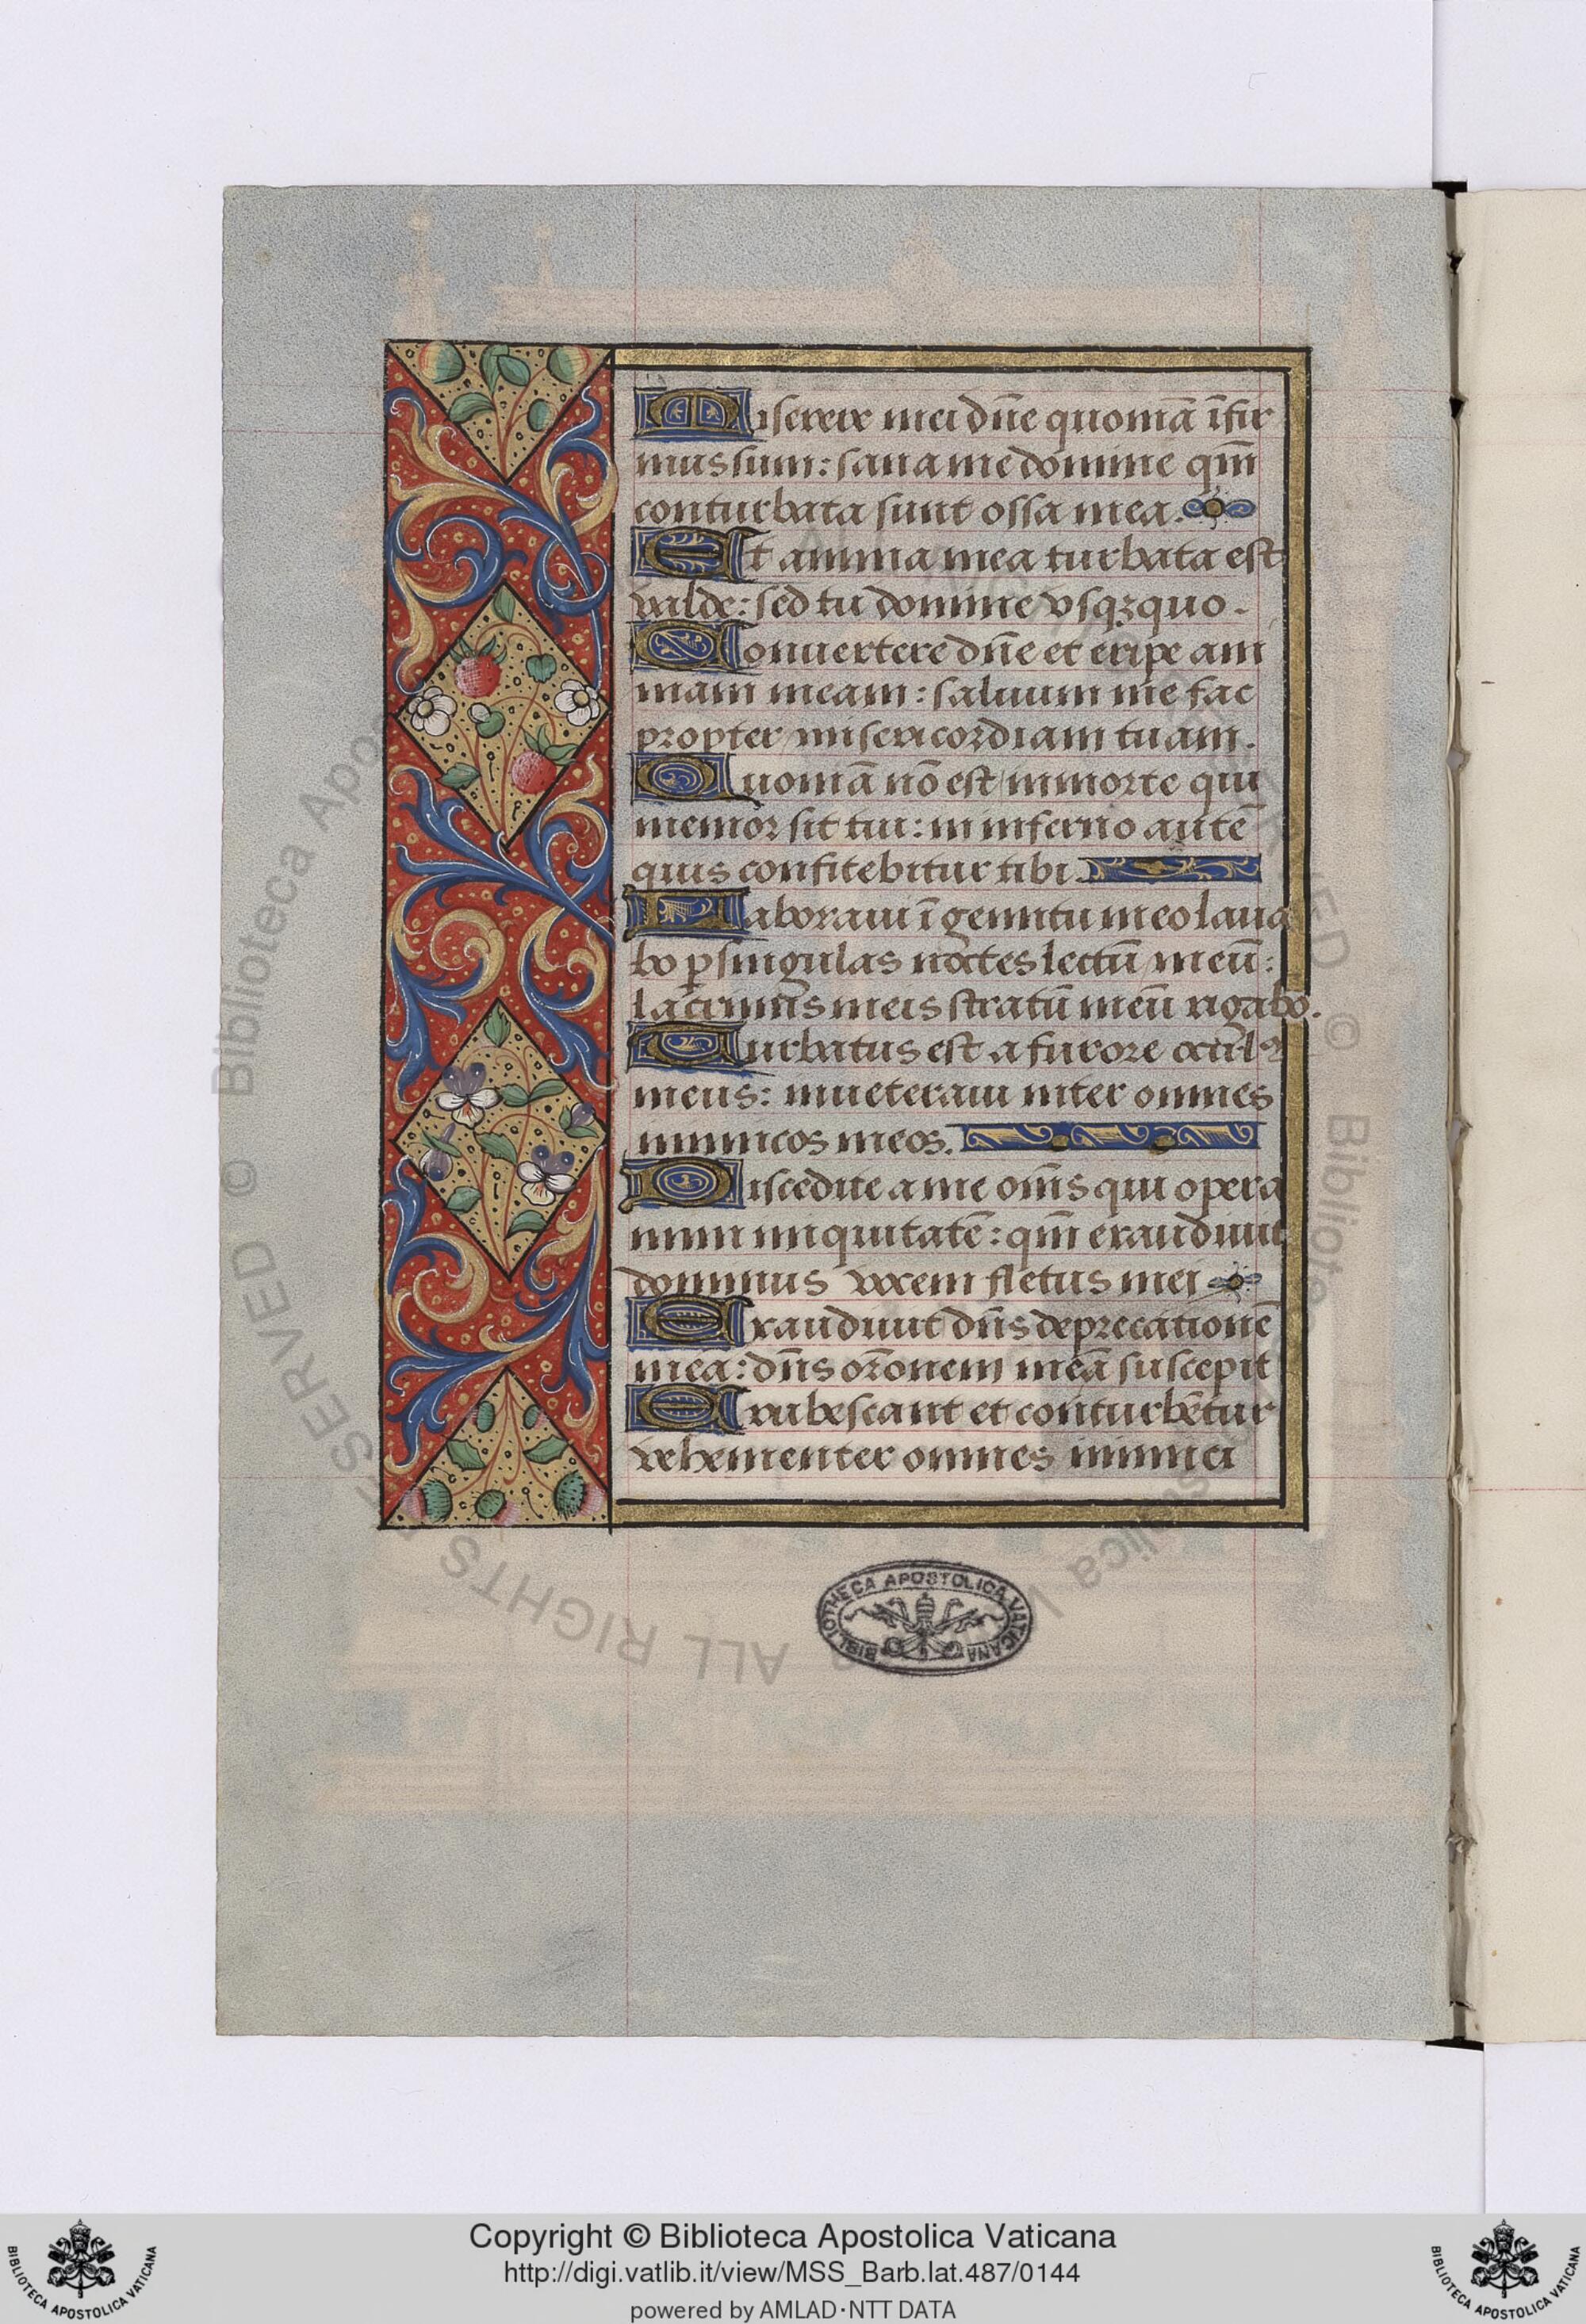 Miserere mei dn̄e quoniā īfir
mus sum: sana me domine qm̄
conturbata sunt ossa mea.
Et anima mea turbata est
valde: sed tu domine vsqꝫquo.
Conuertere dn̄e et eripe ani
mam meam: saluum me fac
propter misericordiam tuam.
Quoniā nō est in morte qui
memor sit tui: in inferno autē
quis confitebitur tibi.
Laboraui ī gemitu meo laua
bo ꝑ singulas noctes lectū meū:
lacrimis meis stratū meū rigabo.
Turbatus est a furore ocul9
meus: inueteraui inter omnes
inimicos meos.
Discedite a me om̄s qui opera
mini iniquitatē: qm̄ exaudiuit
dominus vocem fletus mei
Exaudiuit dn̄s deprecationē
meā: dn̄s or̄onem meā suscepit
Erubescant et conturbētur
vehementer omnes inimici
BIBLIOTHECA APOSTOLICA VATICANA
Copyright © Biblioteca Apostolica Vaticana
http://digi.vatlib.it/view/MSS_Barb.lat.487/0144
powered by AMLAD·NTT DATA
BIBLIOTECA APOSTOLICA VATICANA
BIBLIOTECA APOSTOLICA VATICANA